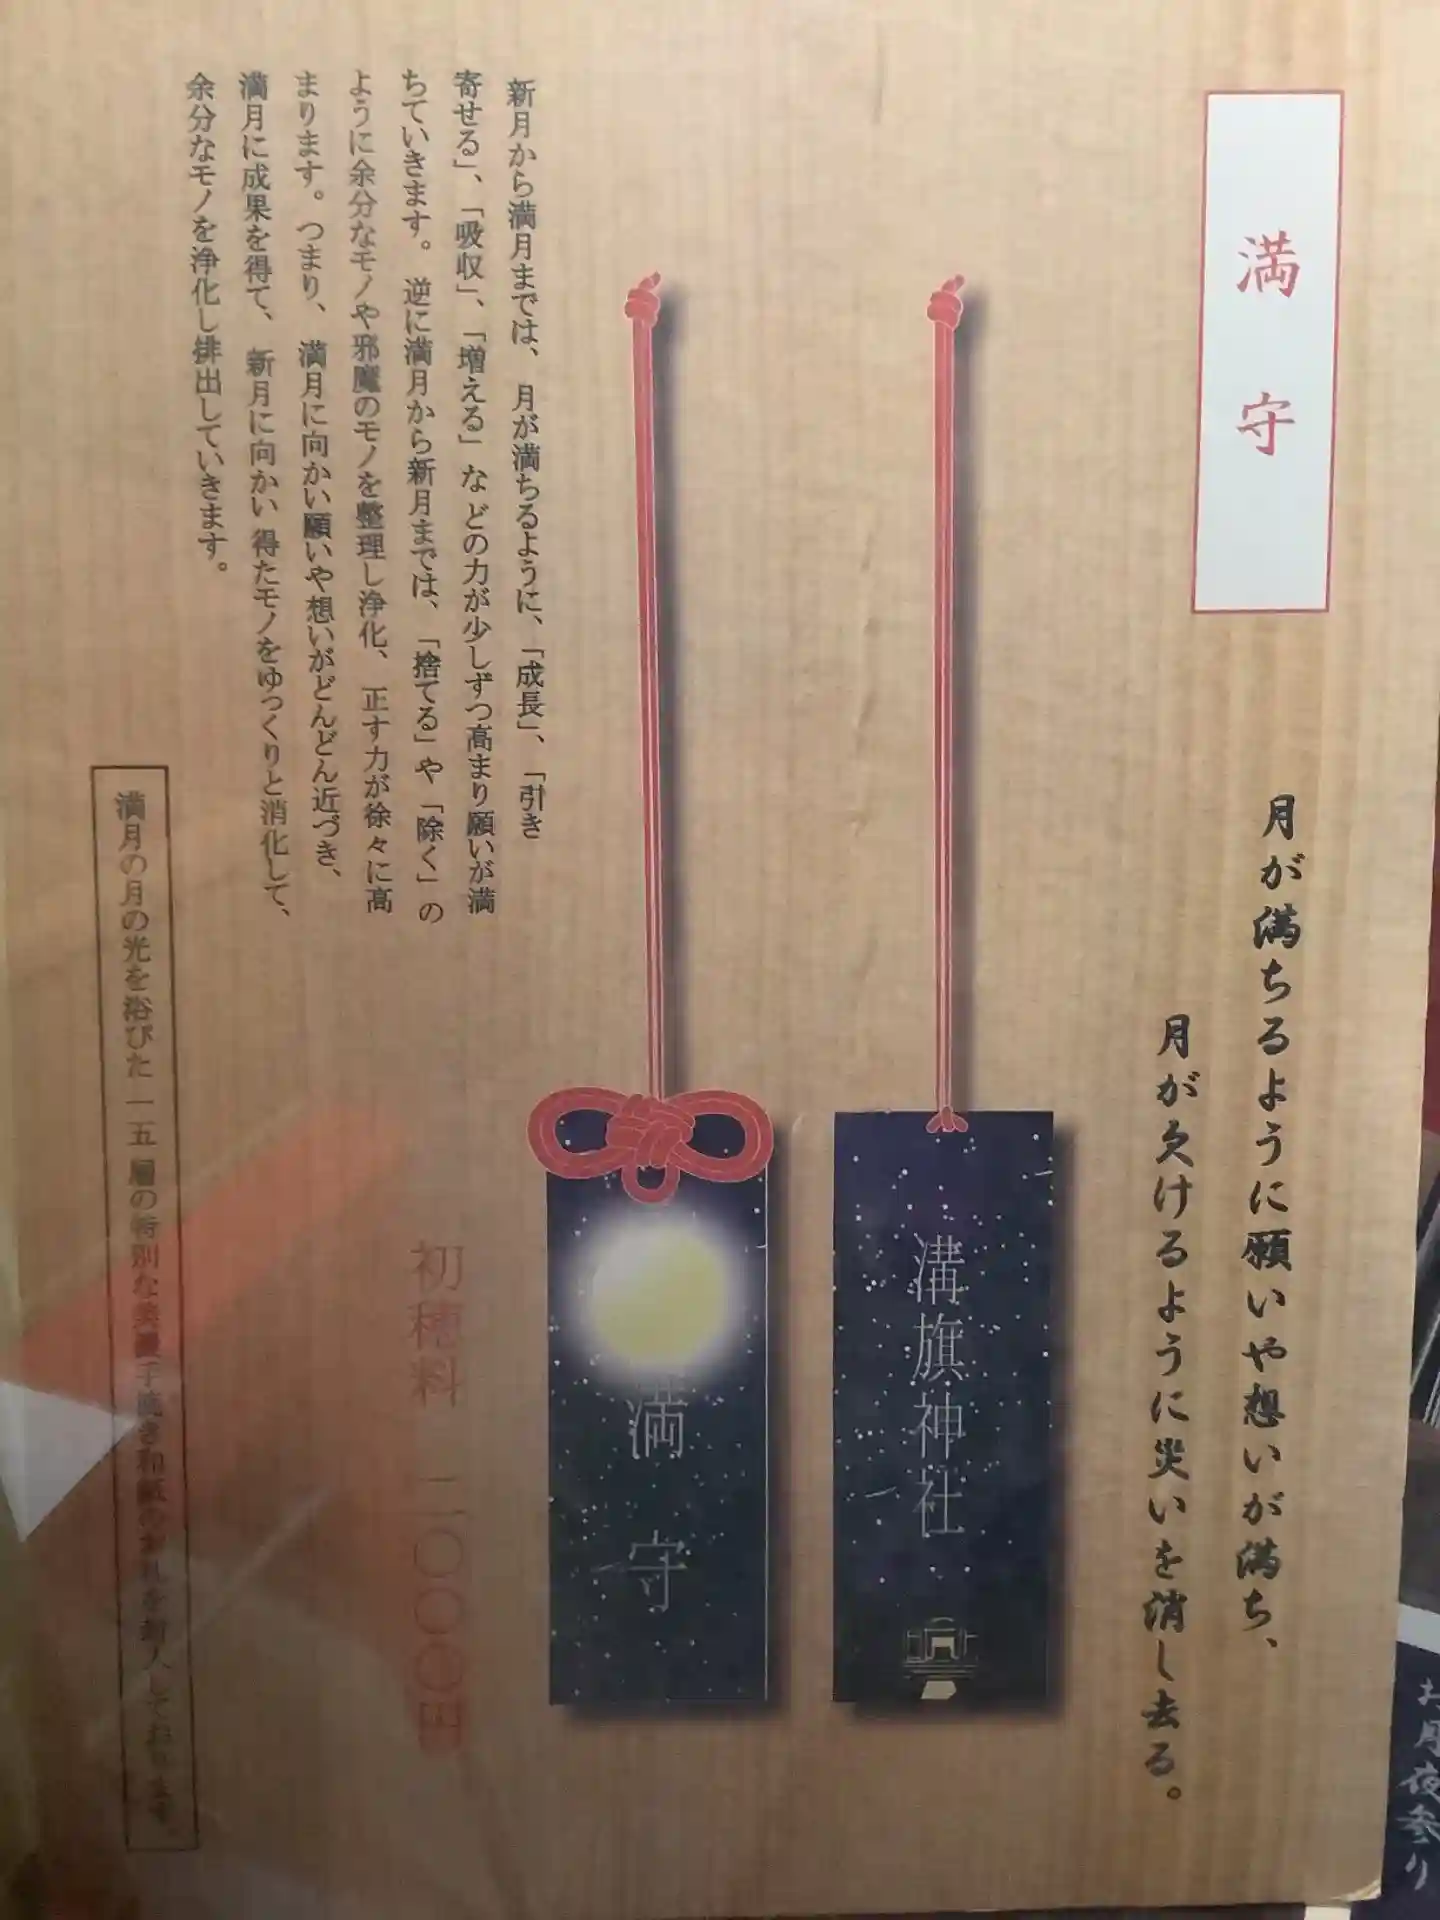 満守
月が満ちるように願いや想いが満ち、
月が欠けるように災いを消し去る。
溝旗神社
満守
新月から満月までは、月が満ちるように、「成長」、「引き
寄せる」、「吸収」、「増える」などの力が少しずつ高まり願いが満
ちていきます。逆に満月から新月までは、「捨てる」や「除く」の
ように余分なモノや邪魔のモノを整理し浄化、正す力が徐々に高
まります。つまり、満月に向かい願いや想いがどんどん近づき、
満月に成果を得て、新月に向かい得たモノをゆっくりと消化して、
余分なモノを浄化し排出していきます。
初穂料 二〇〇〇円
満月の月の光を浴びた一五層の特別な美濃手漉き和紙のお札を封入しております。
お月夜参り